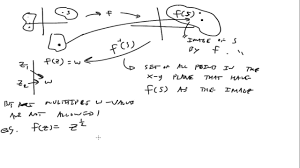 S
f
f(S)
IMAGE OF S
BY f.
f⁻¹(S)
SET OF ALL POINT IN THE
X-y PLANE THAT HAVE
f(S) AS THE IMAGE
z₁
f(z) = w
z₂ w
MULTIPLE W-VALUE
ARE NOT ALLOWED!
eg. f(z) = z^½